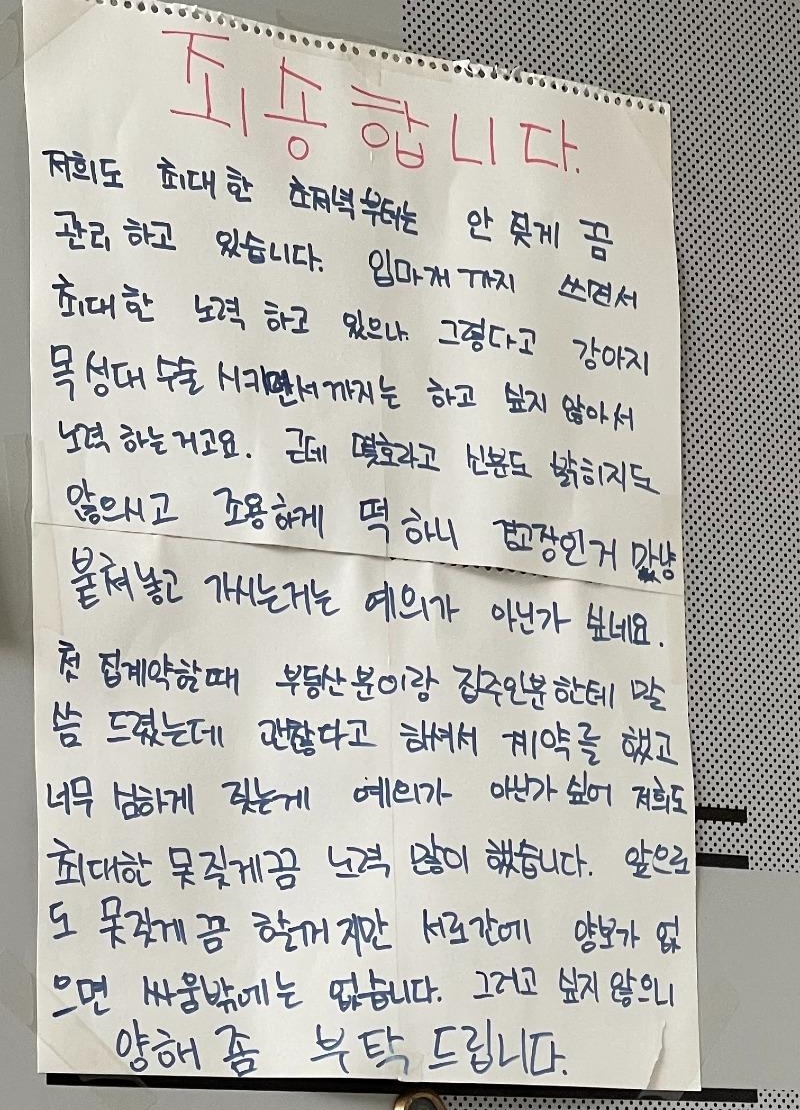 죄송합니다.
저희도 최대한 초저녁부터는 안 짖게 끔
관리 하고 있습니다. 입마개 까지 쓰면서
최대한 노력 하고 있으나. 그렇다고 강아지
목 성대 수술 시키면서까지는 하고 싶지 않아서
노력 하는거고요. 근데 몇호라고 신분도 밝히지도
않으시고 조용하게 떡 하니 경고장인거 마냥
붙쳐놓고 가시는거는 예의가 아닌가 싶네요.
첫 집계약할때 부동산분이랑 집주인분한테 말
씀 드렸는데 괜찮다고 하셔서 계약을 했고
너무 심하게 짖는게 예의가 아닌가 싶어 저희도
최대한 못짖게끔 노력 많이 했습니다. 앞으로
도 못짖게 끔 할꺼지만 서로간에 양보가 없
으면 싸움밖에는 없습니다. 그러고 싶지 않으니
양해 좀 부탁 드립니다.